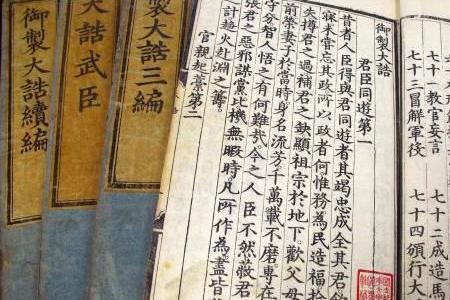 七十一教官妄言 七十二成造馬
七十三冒解軍役 七十四頒行大
御製大誥
君臣同遊第一
昔者人臣得與君同遊者其竭忠成全其君
寐未嘗忘其政所以政者何惟務為民造福拾
失撙君之過補君之缺顯祖宗於地下歡父母
前榮妻子於當時身名流芳千萬載不磨專在
守分智人悟之有何難哉今之人臣不然蔽君
張君之惡邪謀黨比機無暇時凡所作為盡
計趨火赴淵之籌
官親起藁第二
製大誥三編
大誥武臣
御製大誥續編